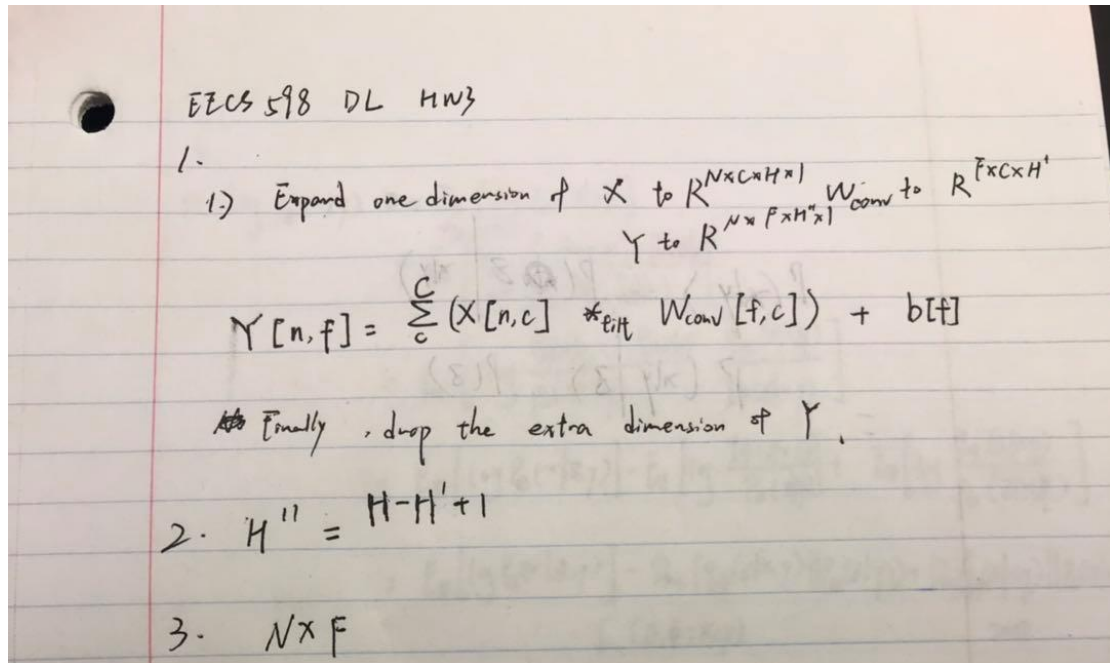 EECS 598 DL HW3
1.
1.) Expand one dimension of X to R^{N×C×H×1} W_{conv} to R^{F×C×H'}
Y to R^{N×F×H''×1}
Y[n,f] = \sum_{c}^{C} (X[n,c] *_{filt} W_{conv}[f,c]) + b[f]
Finally, drop the extra dimension of Y.
2. H'' = H-H'+1
3. N×F